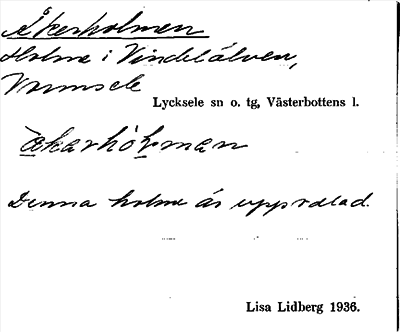 Åkerholmen
Holme i Vindelälven,
Vormsele
Lycksele sn o. tg, Västerbottens l.
åkarhòlman
Denna holme är uppodlad.
Lisa Lidberg 1936.